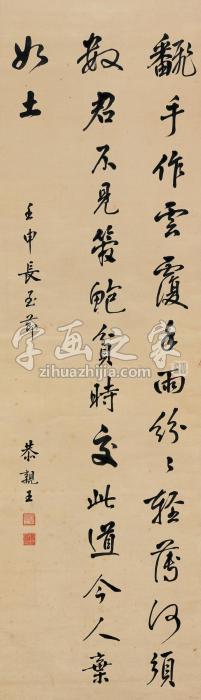 翻手作雲覆手雨紛〻輕薄何須
數君不見管鮑貧時交此道今人棄
如土
壬申長至節
恭親王
字画之家
zihuazhijia.com